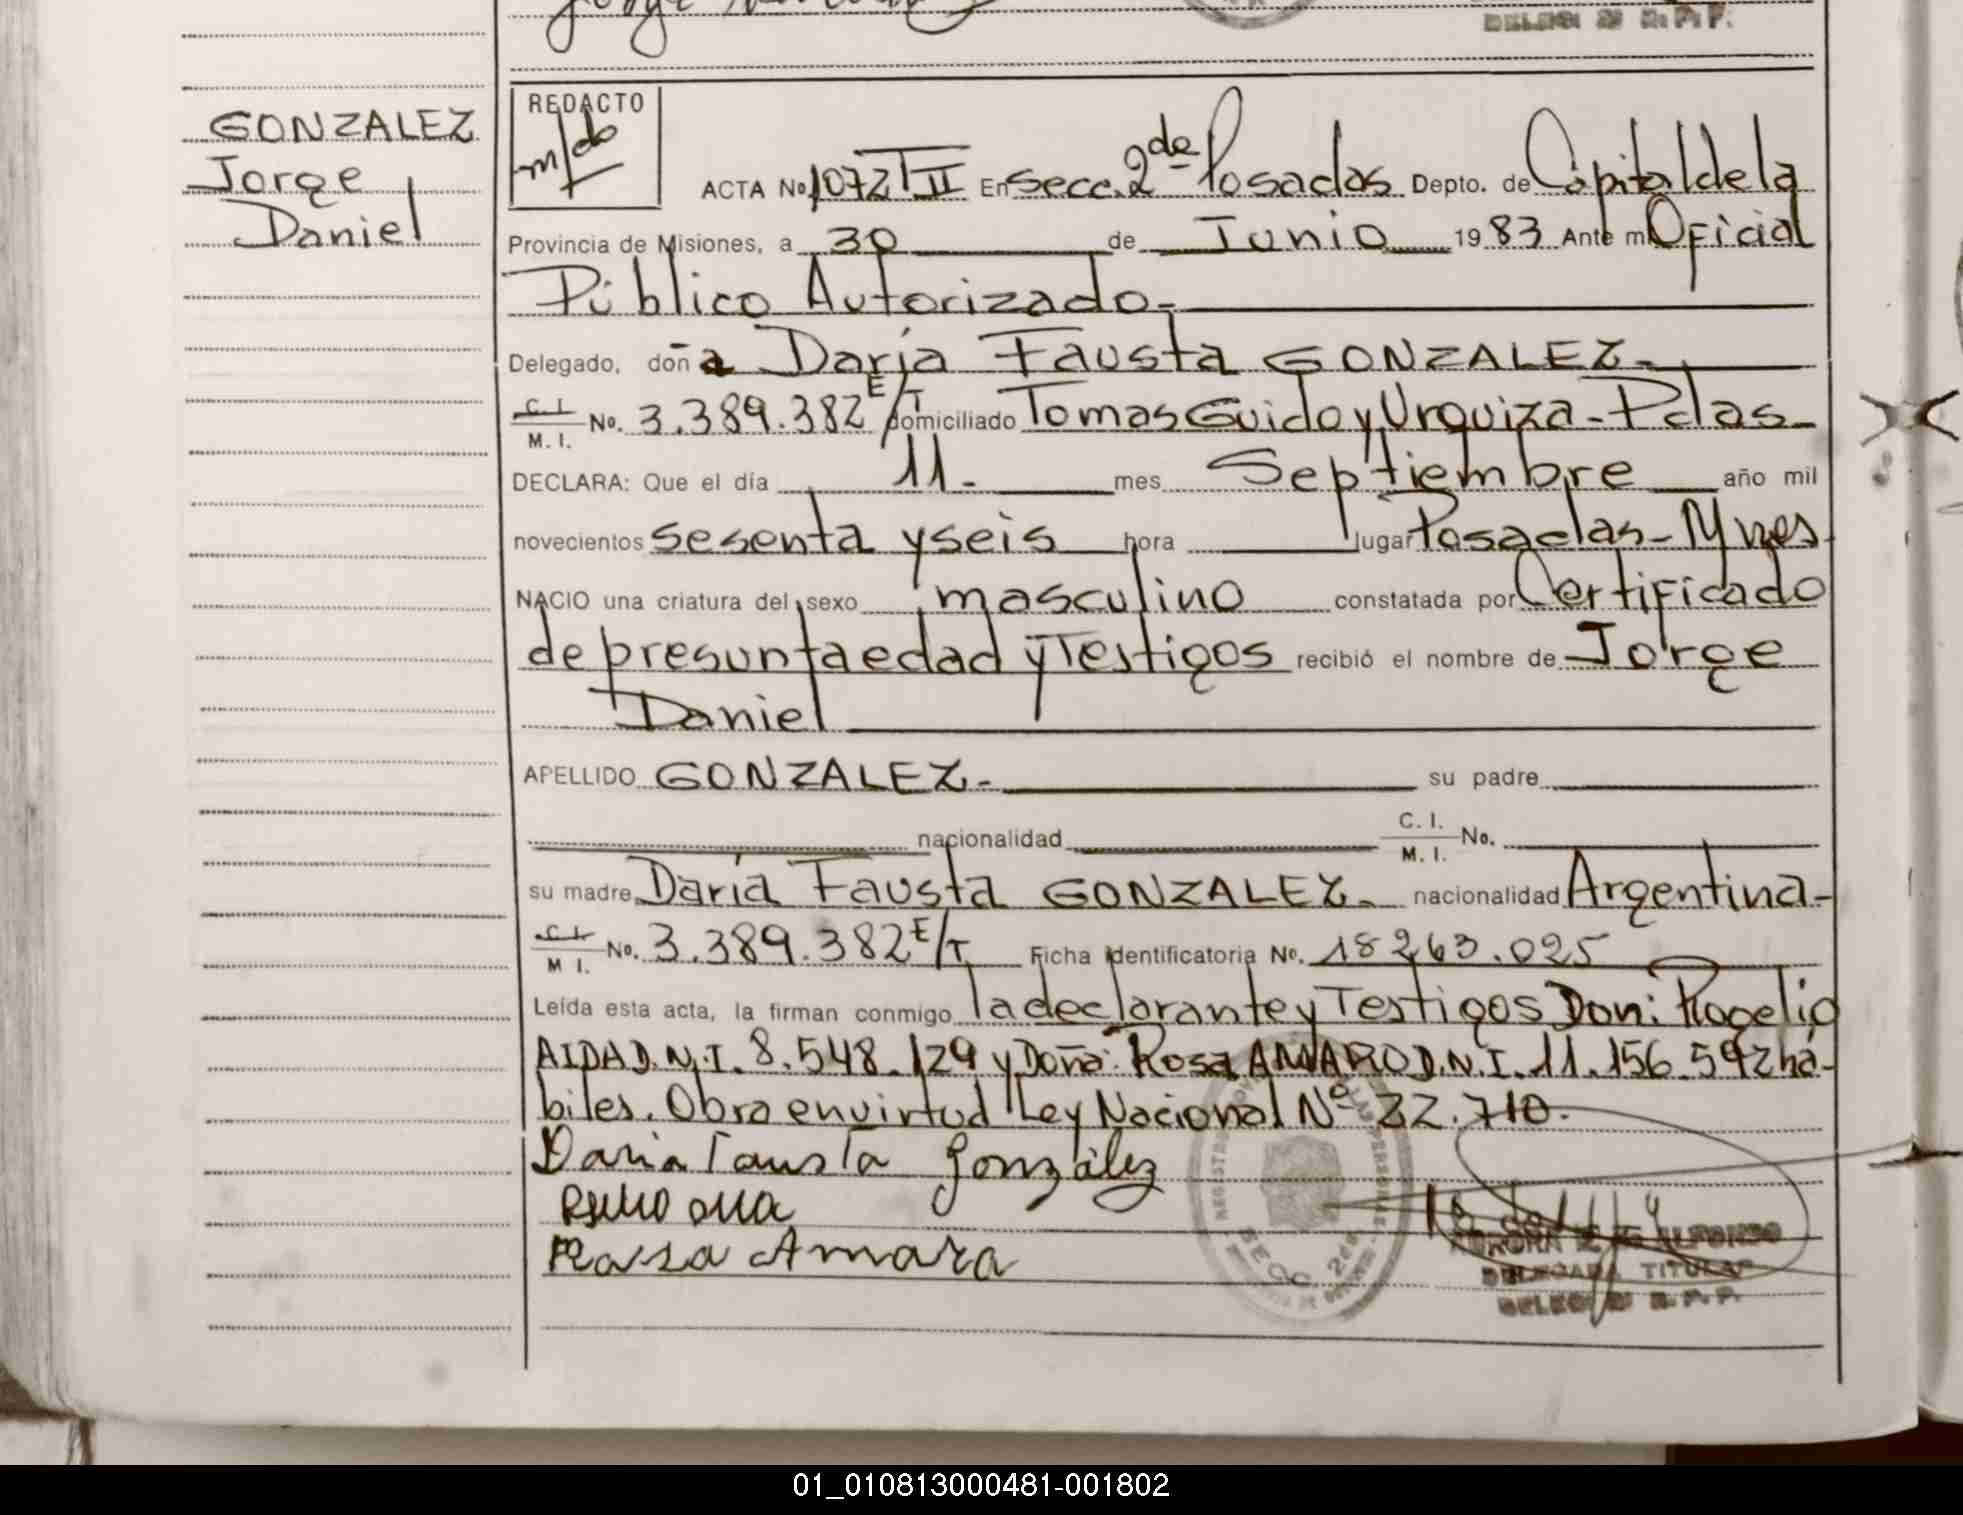 DELEG. 2ª R.P.P.
GONZALEZ
Jorge
Daniel
REDACTO
ACTA No. 1072 T II En Secc. 2da Posadas Depto. de Capital de la
Provincia de Misiones, a 30 de Junio 1983 Ante mí Oficial
Público Autorizado-
Delegado, doña Daría Fausta GONZALEZ-
C.I. M.I. No. 3.389.382 E/T domiciliado Tomas Guido y Urquiza - Pdas-
DECLARA: Que el día 11- mes Septiembre año mil
novecientos sesenta y seis hora lugar Posadas - Mnes.
NACIO una criatura del sexo masculino constatada por Certificado
de presunta edad y Testigos recibió el nombre de Jorge
Daniel
APELLIDO GONZALEZ- su padre
nacionalidad C.I. M.I. No.
su madre Daría Fausta GONZALEZ- nacionalidad Argentina-
C.I. M.I. No. 3.389.382 E/T Ficha Identificatoria No. 18263.025
Leída esta acta, la firman conmigo la declarante y Testigos Don: Rogelio
AIDA D.N.I. 8.548.129 y Doña: Rosa AMARO D.N.I. 11.156.592 há-
biles. Obra en virtud Ley Nacional Nº 22.710.
Daria Fausta González
Rosa Amara
SECC. 2da
ALFONSO
DELEGADA TITULAR
DELEG. 2ª R.P.P.
01_010813000481-001802